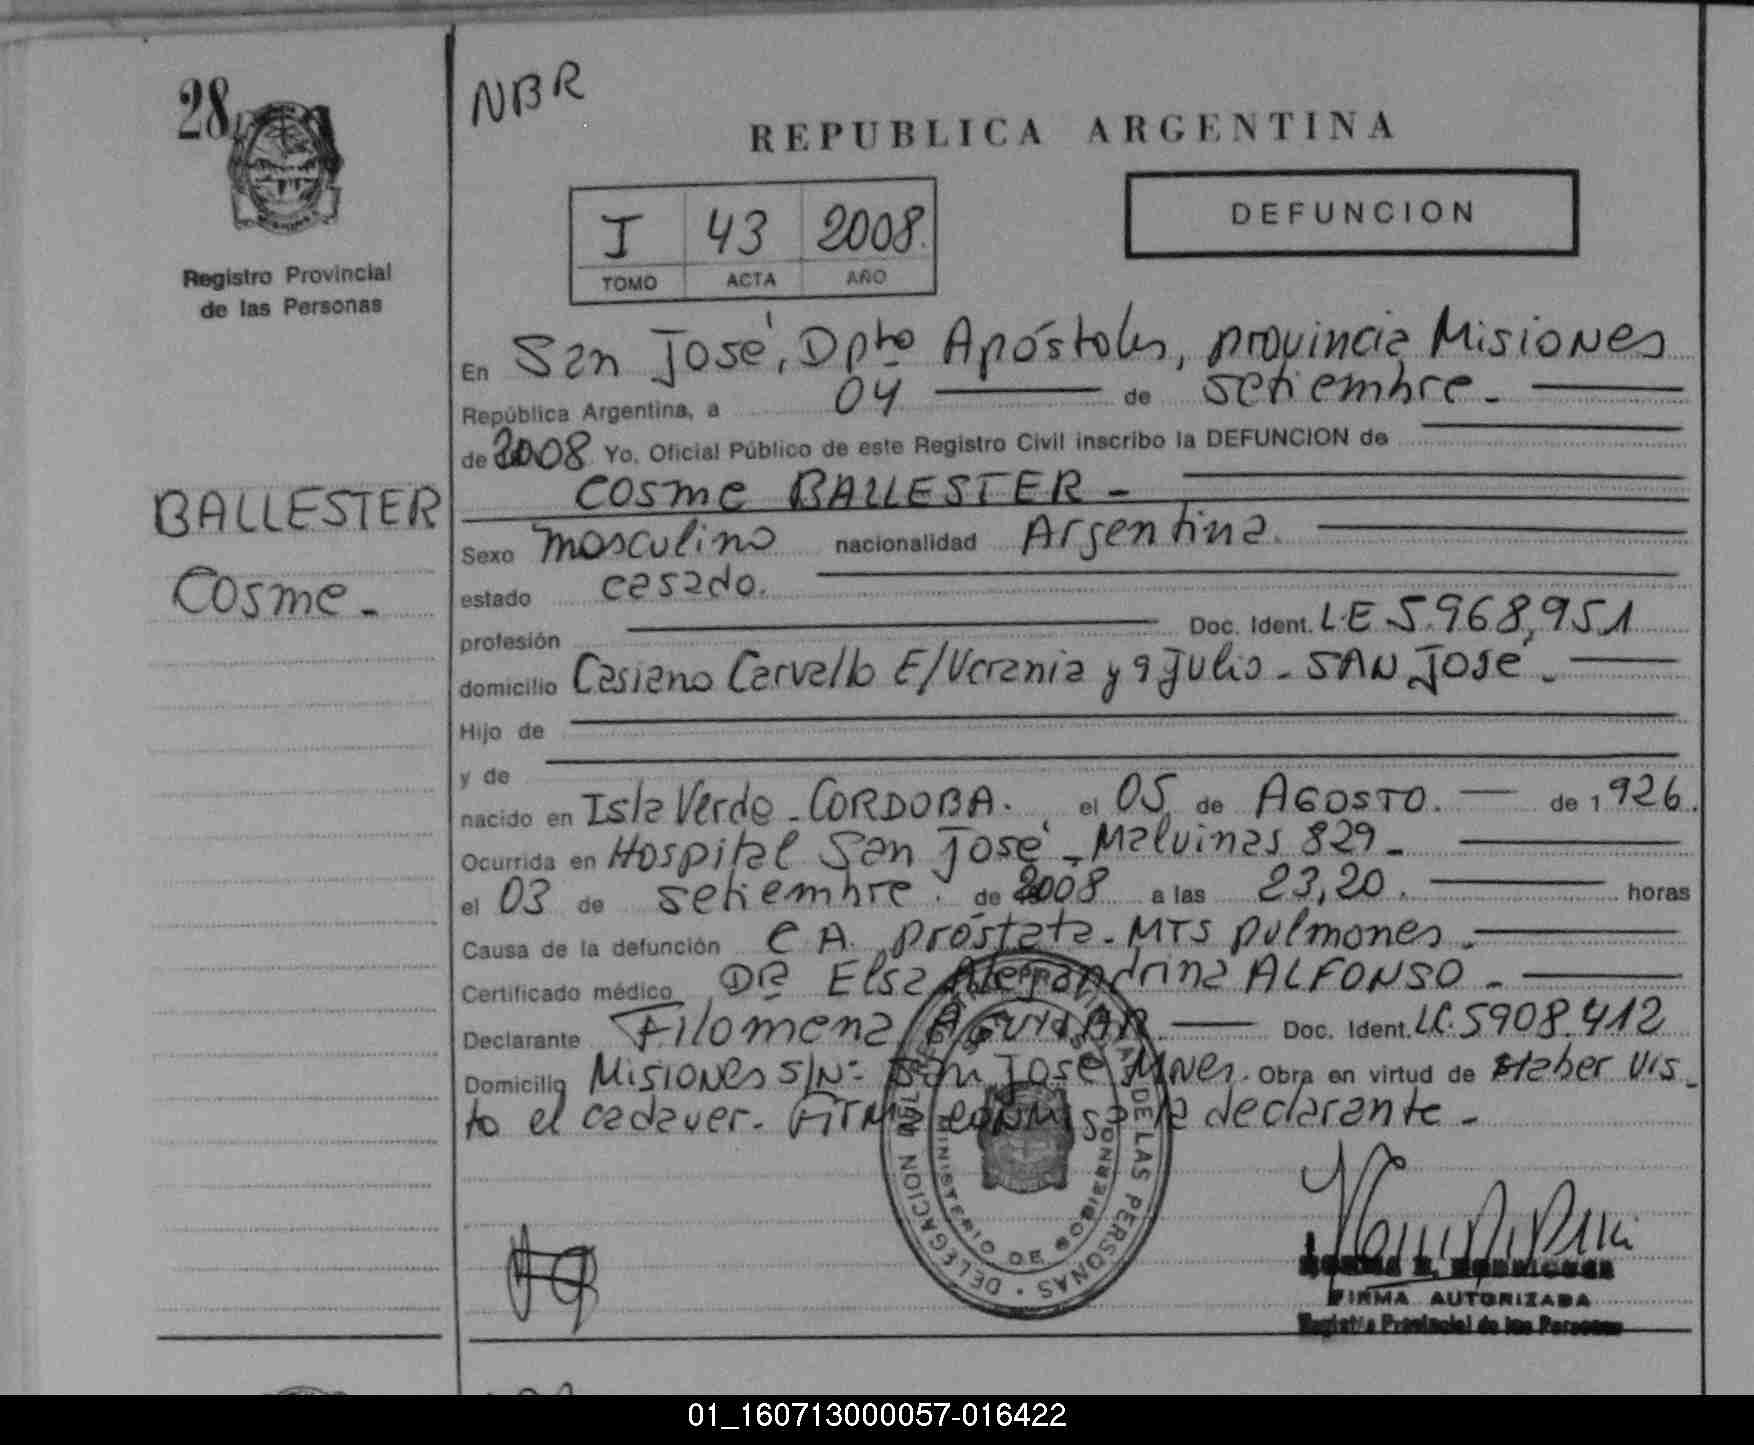 28
NBR
REPUBLICA ARGENTINA
I 43 2008.
TOMO ACTA AÑO
DEFUNCION
Registro Provincial
de las Personas
BALLESTER
Cosme -
En San José, Dpto Apóstoles, provincia Misiones
República Argentina, a 04 de setiembre -
de 2008 Yo, Oficial Público de este Registro Civil inscribo la DEFUNCION de
Cosme BALLESTER -
Sexo masculino nacionalidad Argentina.
estado casado.
profesión Doc. Ident. L.E 5.968,951
domicilio Casiano Carvallo E/Ucrania y 9 Julio - SAN José -
Hijo de
y de
nacido en Isla Verde - CORDOBA. el 05 de AGOSTO. de 1.926.
Ocurrida en Hospital San José - Malvinas 829 -
el 03 de setiembre. de 2008 a las 23,20. horas
Causa de la defunción C A. próstata - MTS pulmones.
Certificado médico DRa Elsa Alejandrina ALFONSO -
Declarante Filomena AGUIAR. Doc. Ident. LC. 5908.412
Domicilio Misiones S/Nº San José Mnes. Obra en virtud de Haber vis-
to el cadaver. Firma la declarante -
DE LAS PERSONAS · DELEGACION
MINISTERIO DE GOBIERNO
FIRMA AUTORIZADA
Registro Provincial de las Personas
01_160713000057-016422